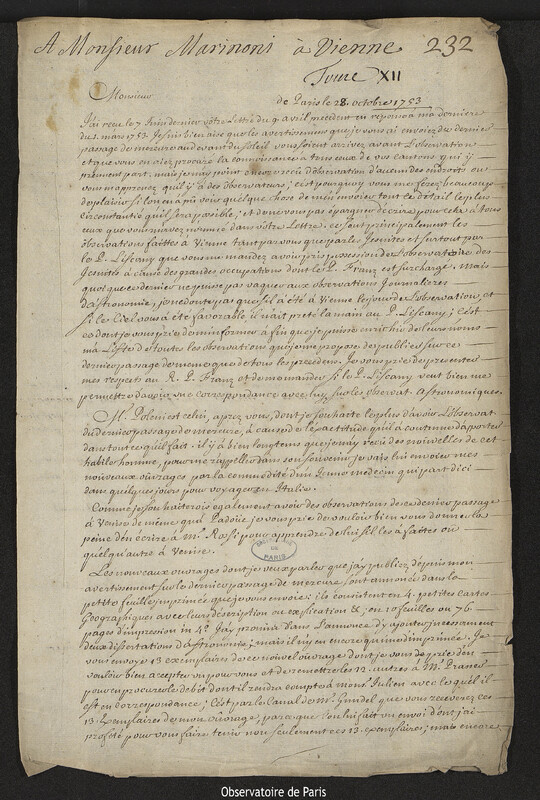 A Monsieur Marinoni à Vienne 232
Tome XII
Monsieur
de Paris le 28. octobre 1753
J'ai reçu le 7 Juin dernier votre Lettre du 9 avril precedent en reponse a ma derniere
du 1. mars 1753. Je suis bien aise que les avertissemens que je vous ai envoiez du dernier
passage de mercure au devant du Soleil vous soient arrivez avant l'observation
et que vous en aiez procuré la connoissance a tous ceux de vos cantons qui y
prennent part; mais je n'ay point encore reçu d'observation d'aucun des endroits où
vous m'apprenez qu'il y a des observateurs; c'est pourquoy vous me ferez beaucoup
de plaisir si l'on en a pû voir quelque chose de m'en envoier tout le détail le plus
circonstantié qu'il sera possible; et de ne vous pas épargner d'écrire pour cela à tous
ceux que vous m'avez nommé dans vôtre Lettre. ce sont principalement les
observations faittes à Vienne tant par vous que par les Jesuites et surtout par
le P. Liscany que vous me mandez avoir pris possession de l'observatoire des
Jesuites à cause des grandes occupations dont le P. Franz est surchargé. Mais
quoique ce dernier ne puisse pas vaquer aux observations Journalieres
d'astronomie, je ne doute pas que s'il a été à Vienne le jour de l'observation, et
si le Ciel vous a été favorable, il n'ait preté la main au P. Liscany; c'est
ce dont je vous prie de m'informer à fin que je puisse enrichir de leurs noms
ma Liste de toutes les observations que je me propose de publier sur ce
dernier passage de meme que de tous les precedens. Je vous prie de presenter
mes respects au R. P. Franz et de me mander si le P. Liscany veut bien me
permettre d'avoir une correspondance avec luy sur les observat. astronomiques.
M. Poleni est celui, aprez vous, dont je souhaite le plus d'avoir l'observat.
du dernier passage de mercure, à cause de l'exactitude qu'il a coutume d'apporter
dans tout ce qu'il fait. il y a bien longtems que je n'ay reçu des nouvelles de cet
habile homme, pour me rappeller dans son souvenir je vais lui envoier mes
nouveaux ouvrages par la commodité d'un Jeune medecin qui part d'ici
dans quelques jours pour voyager en Italie.
Comme je souhaiterois egalement avoir des observations de ce dernier passage
à Venise de même qu'à Padoüe je vous prie de vouloir bien vous donner la
peine d'en écrire à Mr. Rossi pour apprendre de lui s'il les a faites ou
quelqu'autre à Venise.
Les nouveaux ouvrages dont je veux parler que j'ay publiez depuis mon
avertissement sur le dernier passage de mercure sont annoncez dans la
petite feuille imprimée que je vous envoie; ils consistent en 4. petites cartes
Geographiques avec leurs description ou explication &c; en 10 feuilles ou 76
pages d'impression in 4o. J'ay promis dans l'annonce d'y ajouter incessamment
deux dissertations d'astronomie; mais il n'y en encore qu'une d'imprimée. Je
vous envoye 13 exemplaires de ce nouvel ouvrage dont je vous prie d'en
vouloir bien accepter un pour vous et de remettre les 12 autres à Mr. Prance
pour en procurer le debit dont il rendra compte à mons. Julien avec lequel il
est en correspondance; C'est par le Canal de Mr. Gundel que vous recevrez ces
13. Exemplaires de mon ouvrage, parce que l'on lui fait un envoi dont j'ai
profité pour vous faire tenir non seulement ces 13. exemplaires; mais encore
OBSERVATOIRE DE PARIS
Observatoire de Paris